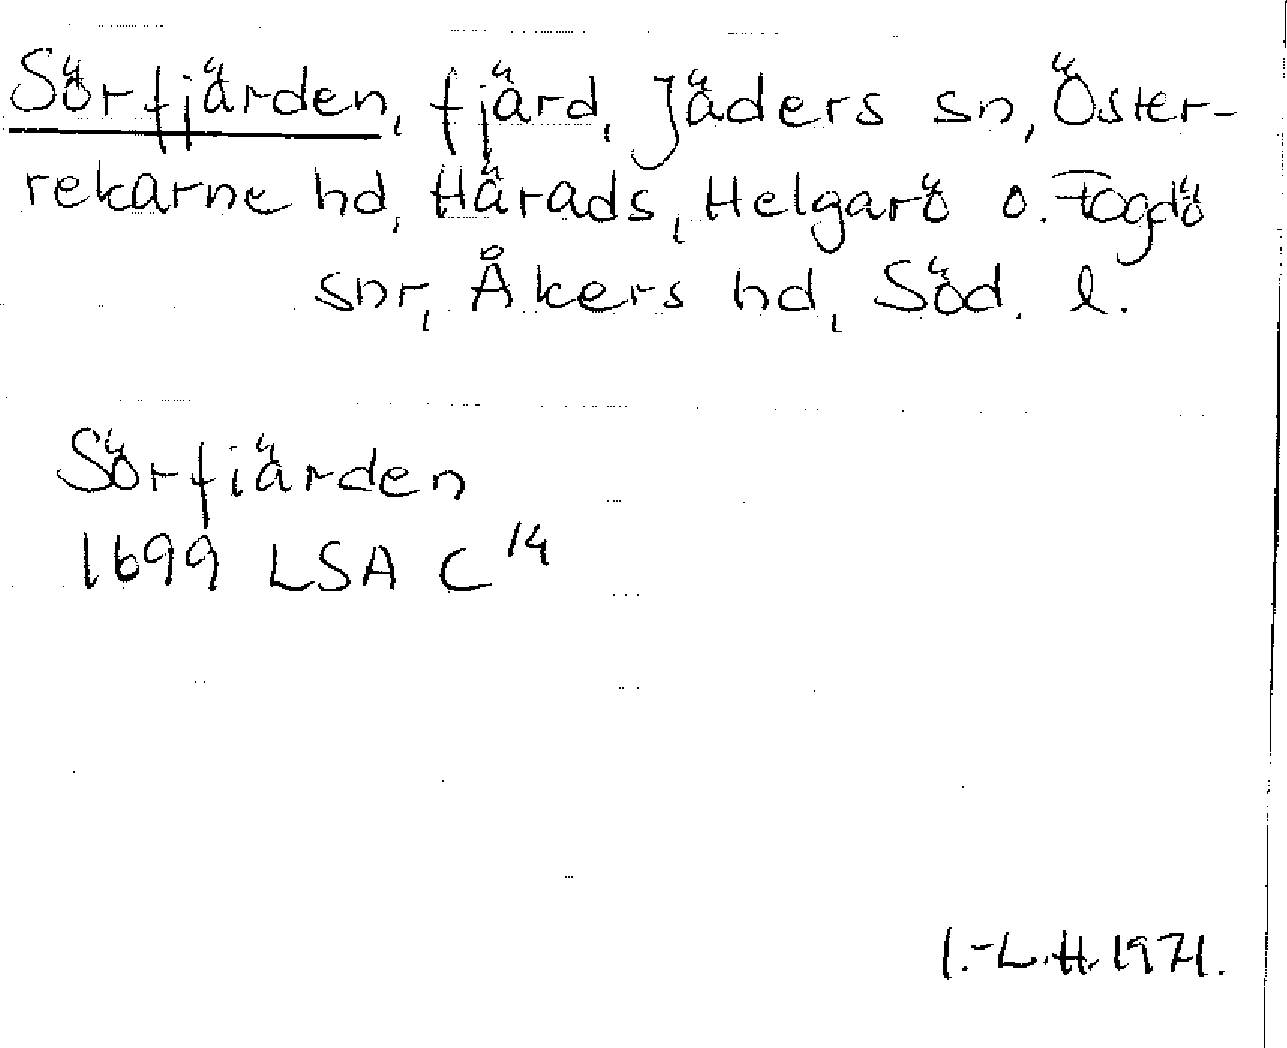 Sörfjärden, fjärd, Jäders sn, Öster-
rekarne hd, Härads, Helgarö o. Fogdö
snr, Åkers hd, Söd. l.
Sörfiärden
1699 LSA C 14
I.-L.H. 1971.